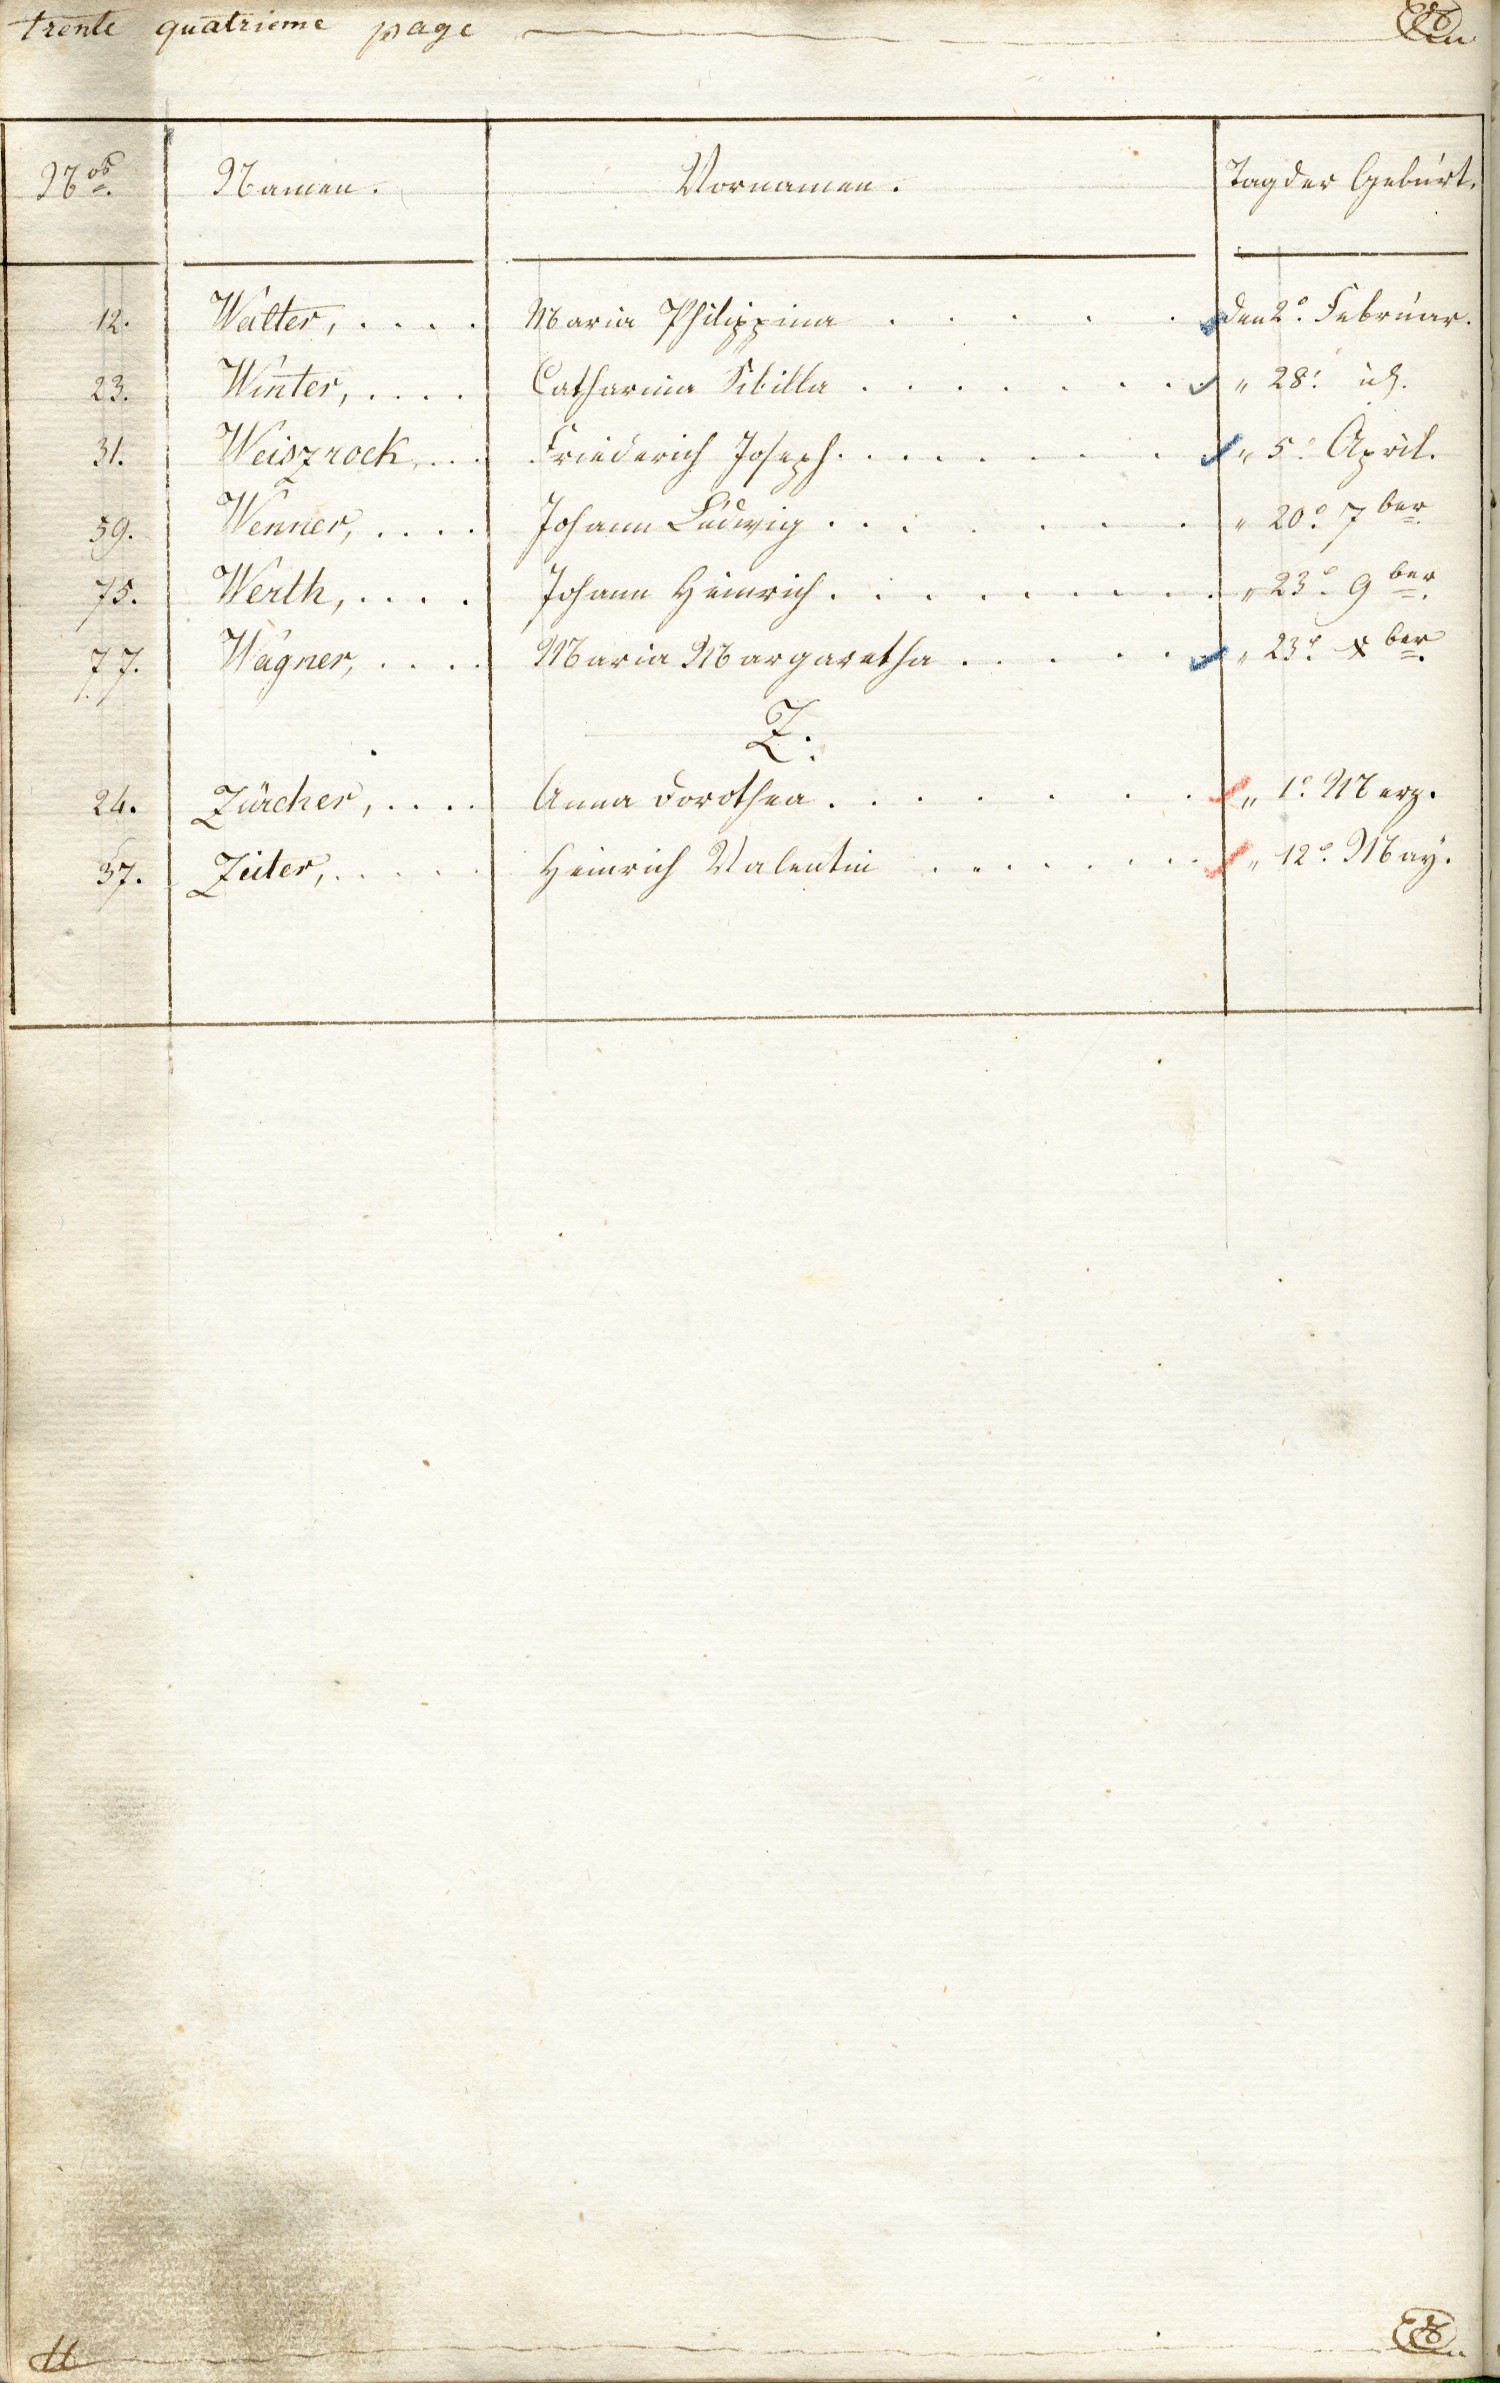 trente quatrieme page
Nos. Namen. Vornamen. Tag der Geburt.
12. Walter, . . . . Maria Philippina . . . . . . den 2e. Februar.
23. Winter, . . . . Catharina Sibilla . . . . . . . " 28e. id.
31. Weiszrock, . . Friederich Joseph . . . . . . . " 5e. April.
59. Wenner, . . . . Johann Ludwig . . . . . . . " 20e. 7ber
75. Werth, . . . . Johann Heinrich . . . . . . . . " 23e. 9ber.
77. Wagner, . . . . Maria Margaretha . . . . . " 23e. Xber.
Z.
24. Zürcher, . . . . Anna Dorothea . . . . . . . " 1e. Merz.
37. Zeiter, . . . . . Heinrich Valentin . . . . . . " 12e. May.